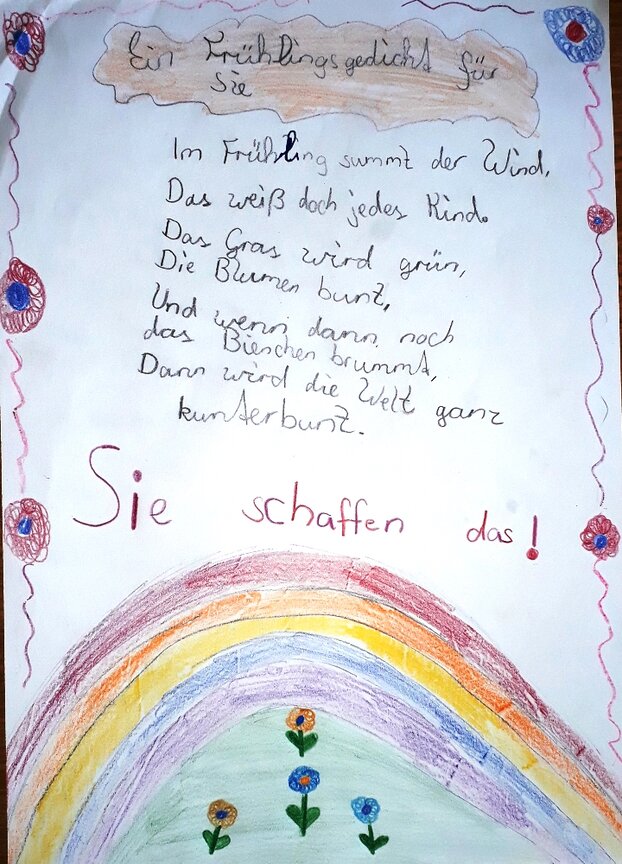 Ein Frühlingsgedicht für
Sie
Im Frühling summt der Wind,
Das weiß doch jedes Kind.
Das Gras wird grün,
Die Blumen bunt,
Und wenn dann noch
das Bienchen brummt,
Dann wird die Welt ganz
kunterbunt.
Sie schaffen das!